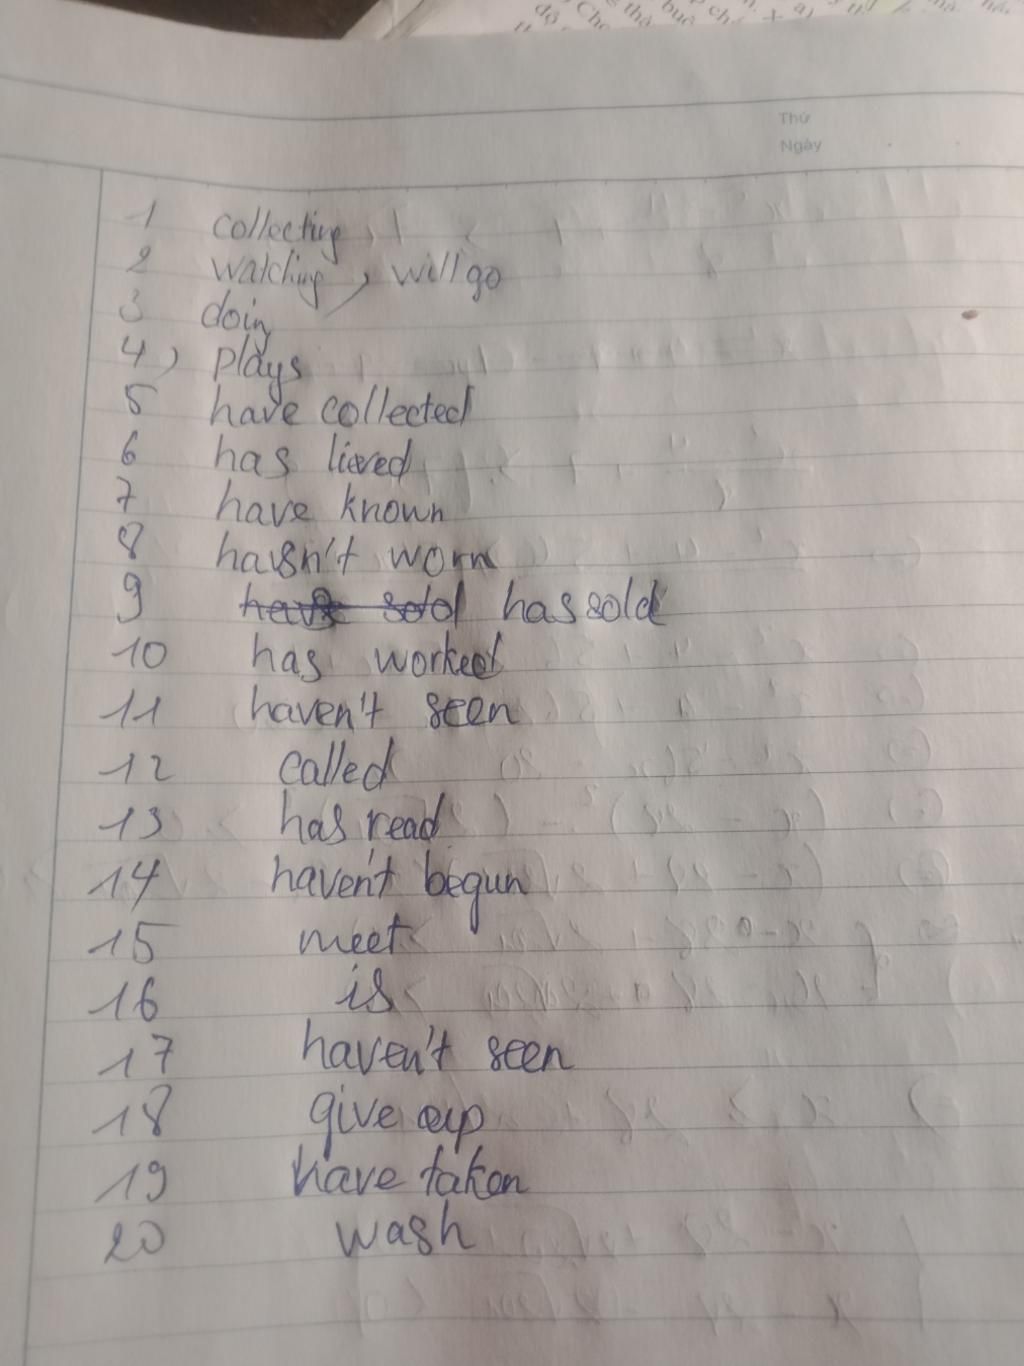 Thứ
Ngày
1 collecting
2 watching, will go
3 doing
4) plays
5 have collected
6 has lieved
7 have known
8 hasn't worn
9 has sold
10 has worked
11 haven't seen
12 called
13 has read
14 haven't begun
15 meet
16 is
17 haven't seen
18 give up
19 have taken
20 wash